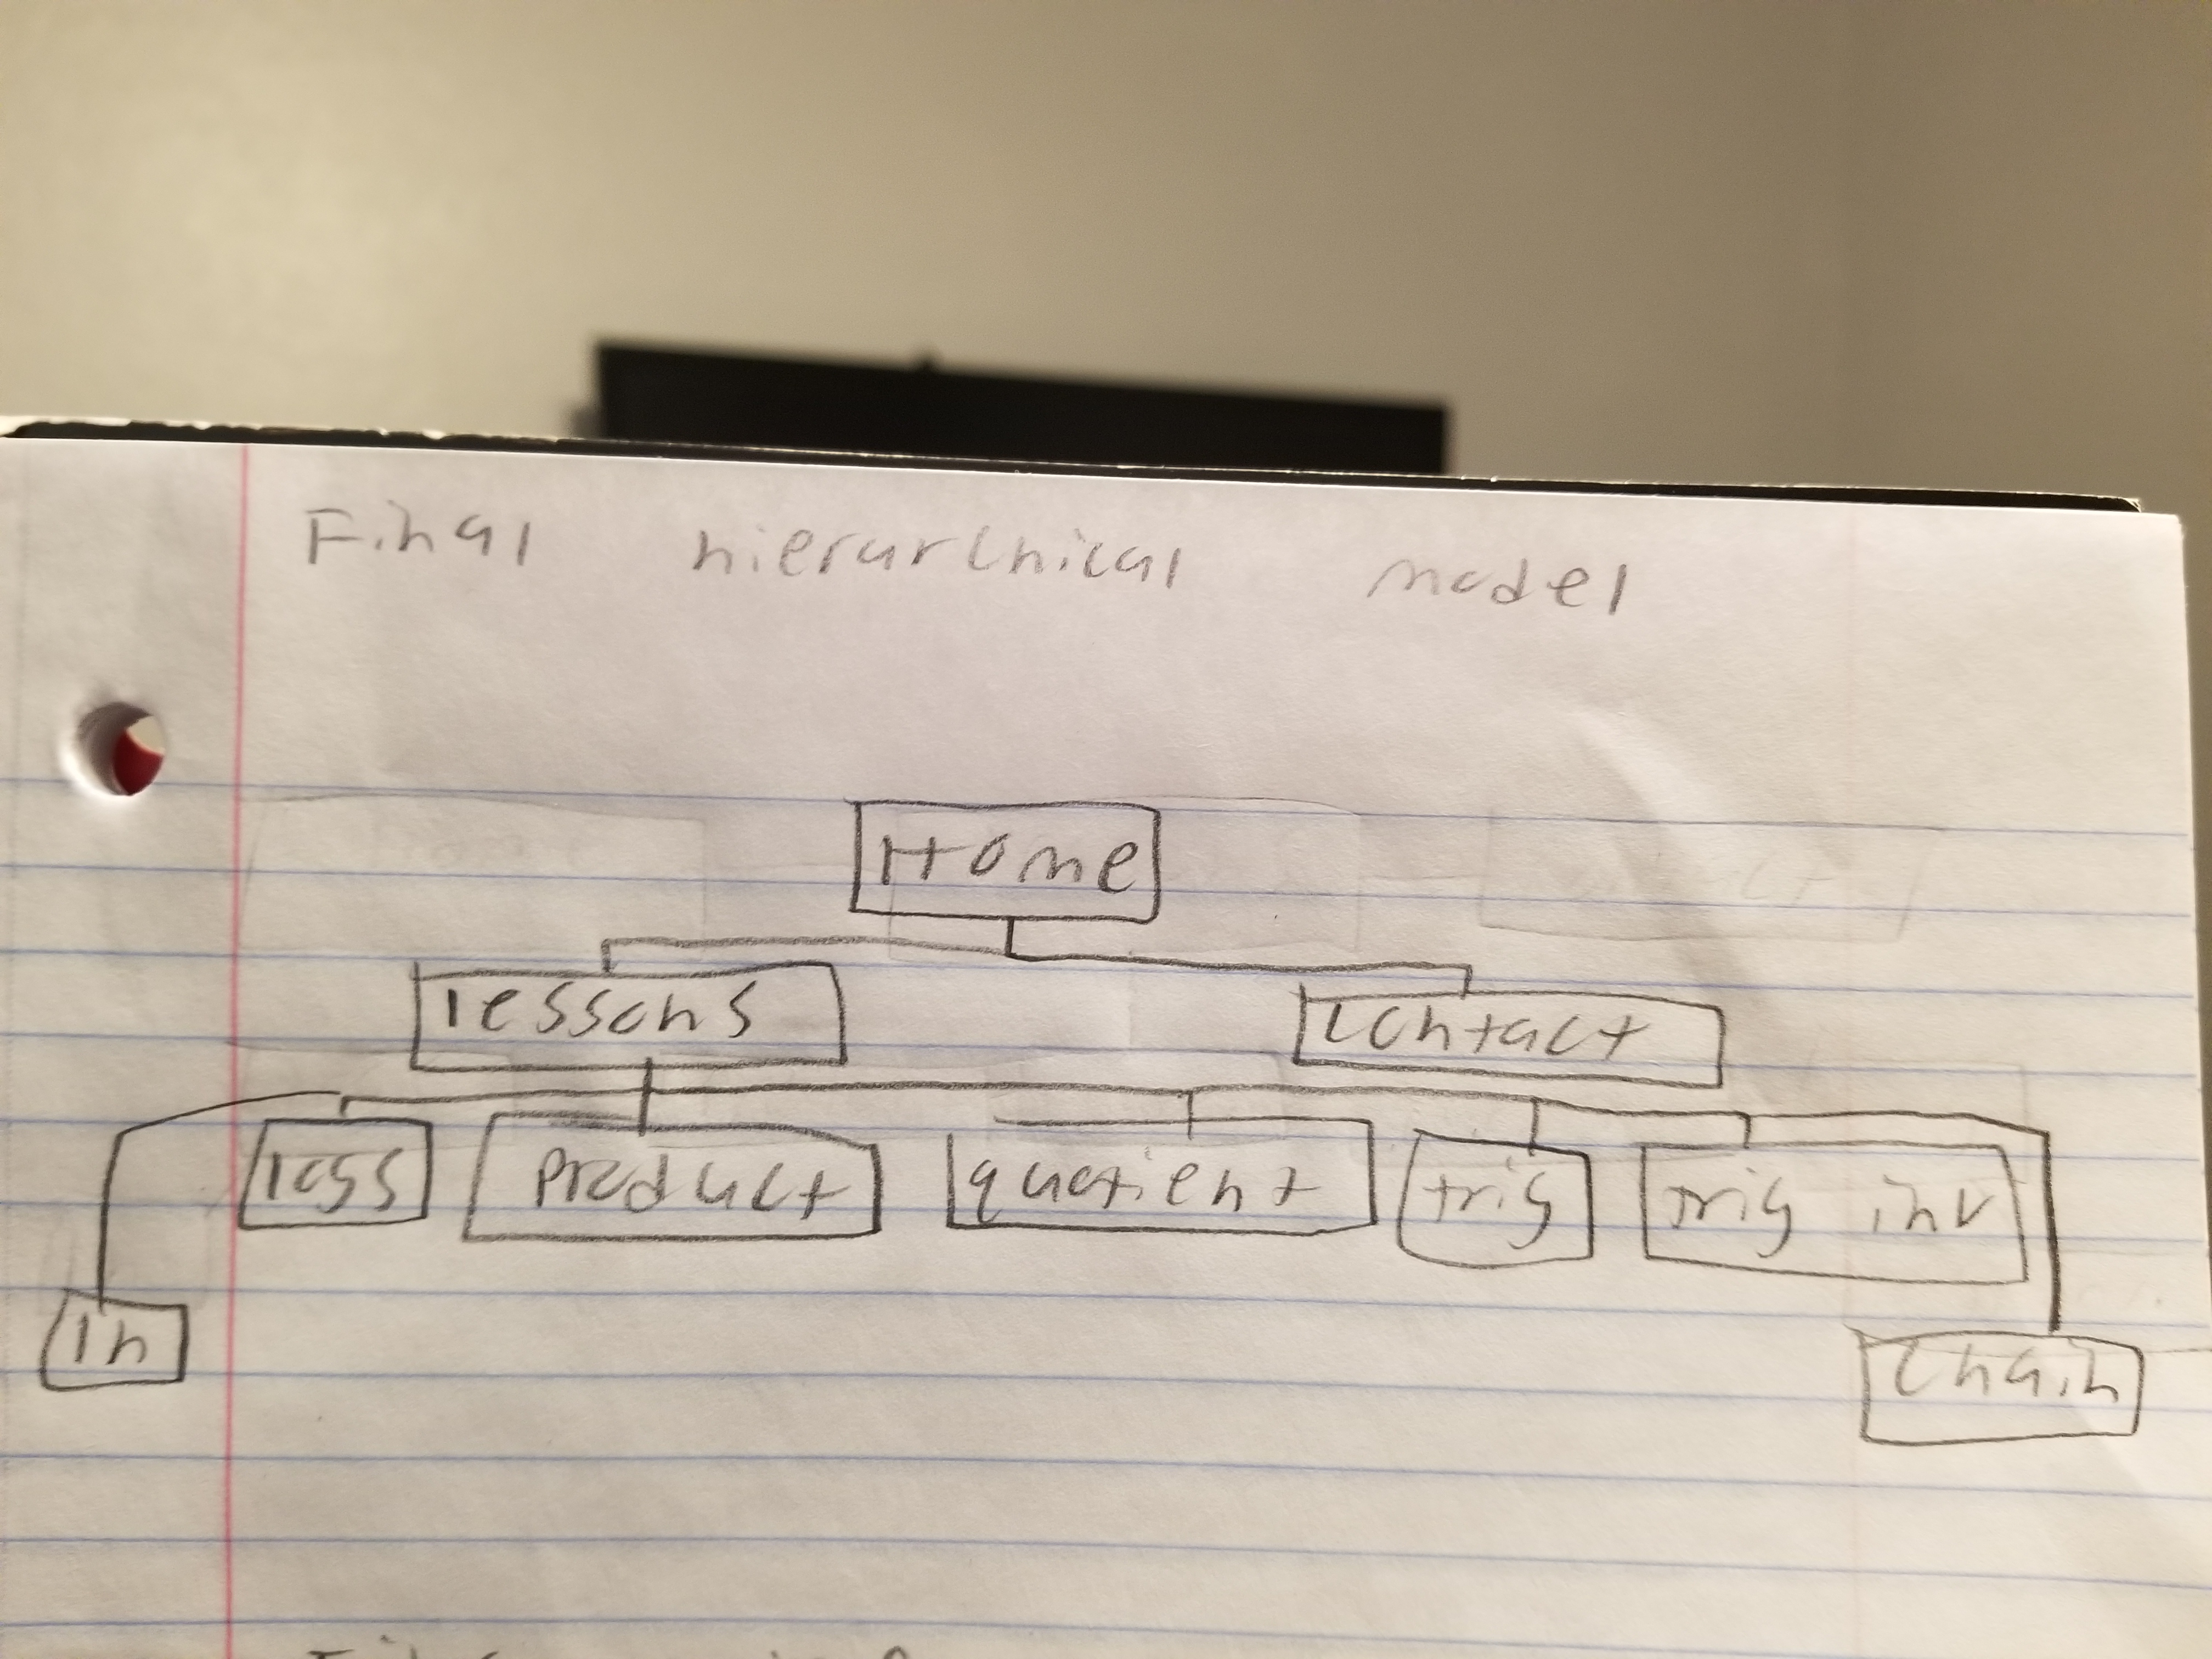 Final hierarchical model
Home
lessons contact
loss product quotient trig trig inv
ln chain